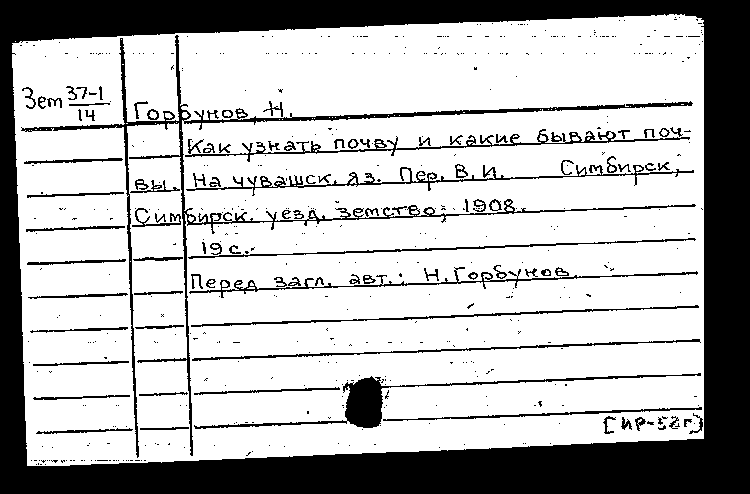 Зет 37-1/14
Горбунов, Н.
Как узнать почву и какие бывают поч-
вы. На чувашск. яз. Пер. В. И. Симбирск,
Симбирск. уезд. земство, 1908.
19 с.
Перед загл. авт.: Н. Горбунов.
[ИР-58г]